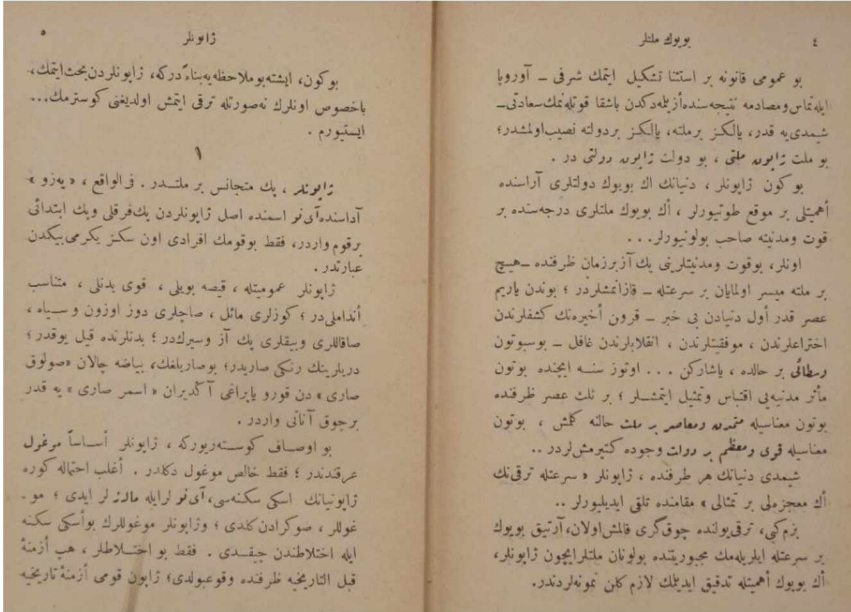 ٤
بویوك ملتلر
بو عمومی قانونه بر استثنا تشكیل ایتمك شرفی ــ آوروپا
ایله تماس ومصادمه نتیجه سنده أزیله دكدن باشقا قوتله نمك سعادتی ــ
شیمدی یه قدر، یالكز بر ملته، یالكز بر دولته نصیب اولمشدر؛
بو ملت ژاپون ملتی ، بو دولت ژاپون دولتی در .
بو كون ژاپونلر ، دنیانك اك بویوك دولتلری آراسنده
أهمیتلی بر موقع طوتیورلر ، أك بویوك ملتلری درجه سنده بر
قوت ومدنیته صاحب بولونیورلر . . .
اونلر، بوقوت ومدنیتلرینی پك آز بر زمان ظرفنده ــ هیچ
بر ملته میسر اولمایان بر سرعتله ــ قازانمشلردر ؛ بوندن یاریم
عصر قدر أول دنیادن بی خبر ــ قرون أخیره نك كشفلرندن
اختراعلرندن ، موفقیتلرندن ، انقلابلرندن غافل ــ بوسبوتون
وسطائی بر حالده ، یاشاركن . . . اوتوز سنه ایچنده بوتون
مآثر مدنیه یی اقتباس وتمثیل ایتمشلر ؛ بر ثلث عصر ظرفنده
بوتون معناسیله متمدن ومعاصر بر ملت حالنه كلمش ، بوتون
معناسیله قوی ومعظم بر دولت وجوده كتیرمش لردر ..
شیمدی دنیانك هر طرفنده ، ژاپونلر « سرعتله ترقی نك
أك معجزه لی بر تمثالی » مقامنده تلقی ایدیلیورلر ..
بزم كبی، ترقی یولنده چوق گری قالمش اولان، آرتیق بویوك
بر سرعتله ایلریله مك مجبوریتنده بولونان ملتلر ایچون ژاپونلر،
أك بویوك أهمیتله تدقیق ایدیلمك لازم كلن نمونه لردندر.
ژاپونلر
٥
بو كون، ایشته بو ملاحظه یه بناءً دركه، ژاپونلردن بحث ایتمك،
باخصوص اونلرك نه صورتله ترقی ایتمش اولدیغنی كوسترمك...
ایستیورم .
١
ژاپونلر ، پك متجانس بر ملتدر . فی الواقع ، « یه زو »
آداسنده آی نو اسمنده اصل ژاپونلردن پك فرقلی وپك ابتدائی
بر قوم واردر، فقط بو قومك افرادی اون سكز یكرمی بیكدن
عبارتدر .
ژاپونلر عمومیتله ، قیصه بویلی ، قوی بدنلی ، متناسب
أندامل‌ی در ؛ كوزلری مائل ، صاچلری دوز اوزون وسیاه ،
صاقاللری وبیقلری پك آز وسیرك در ؛ بدنلرنده قیل یوقدر ؛
دریلرینك رنكی صاریدر ؛ بو صاریلغك، بیاضه چالان « صولوق
صاری » دن قورو یاپراغی آكدیران « اسمر صاری » یه قدر
برچوق آناتی واردر .
بو اوصاف كوسته ریوركه ، ژاپونلر أساساً موغول
عرقندندر ؛ فقط خالص موغول دكلدر . أغلب احتماله كوره
ژاپونیانك اسكی سكنه سی، آی نو لر ایله مالز لر ایدی ؛ مو-
غوللر ، صوكرادن كلدی ؛ وژاپونلر موغوللرك بو أسكی سكنه
ایله اختلاطندن چیقدی . فقط بو اختلاطلر ، هپ أزمنهٔ
قبل التاریخیه ظرفنده وقوعبولدی؛ ژاپون قومی أزمنهٔ تاریخیه